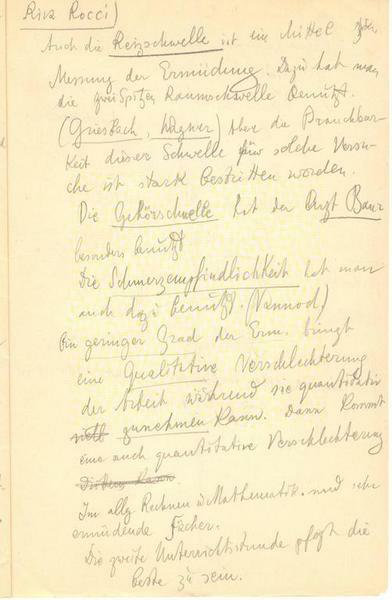 Riva Rocci)
Auch die Reizschwelle ist ein Mittel zur
Messung der Ermüdung. Dazu hat man
die zwei Spitzen Raumschwelle benützt.
(Griesbach, Wagner) Aber die Brauchbar-
keit dieser Schwelle für solche Versu-
che ist stark bestritten worden.
Die Gehörschwelle hat der Arzt Baur
besonders benützt
Die Schmerzempfindlichkeit hat man
auch dazu benützt. (Vannod)
Ein geringer Grad der Erm. bringt
eine Qualitative Verschlechterung
der Arbeit während sie quantitativ
zunehmen kann. Dann kommt
eine auch quantitative Verschlechterung
Im allg Rechnen u Mathematik sind sehr
ermüdende Fächer.
Die zweite Unterrichtsstunde pflegt die
beste zu sein.